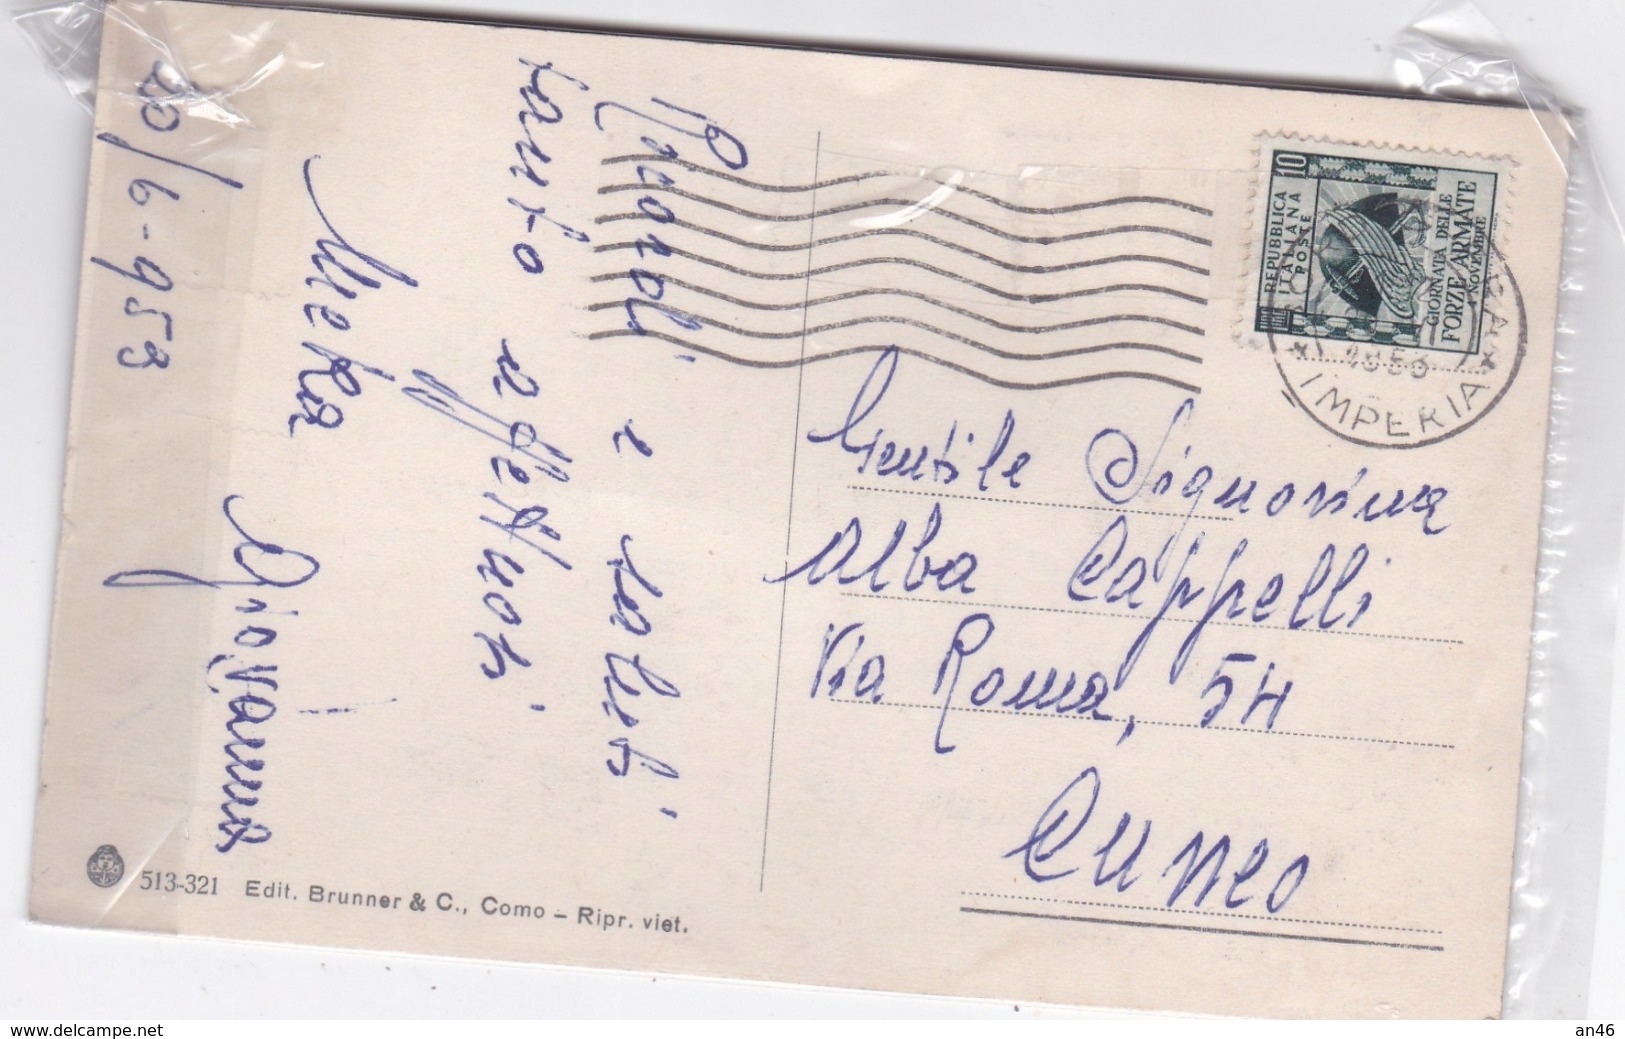 Ricordi e saluti
tanto affettuosi
Giovanna
20/6-953
513-321 Edit. Brunner & C., Como – Ripr. viet.
REPUBBLICA
ITALIANA
POSTE
10
GIORNATA DELLE
FORZE ARMATE
4 NOVEMBRE
1953
IMPERIA
Gentile Signorina
Alba Cappelli
Via Roma, 54
Cuneo
www.delcampe.net
an46